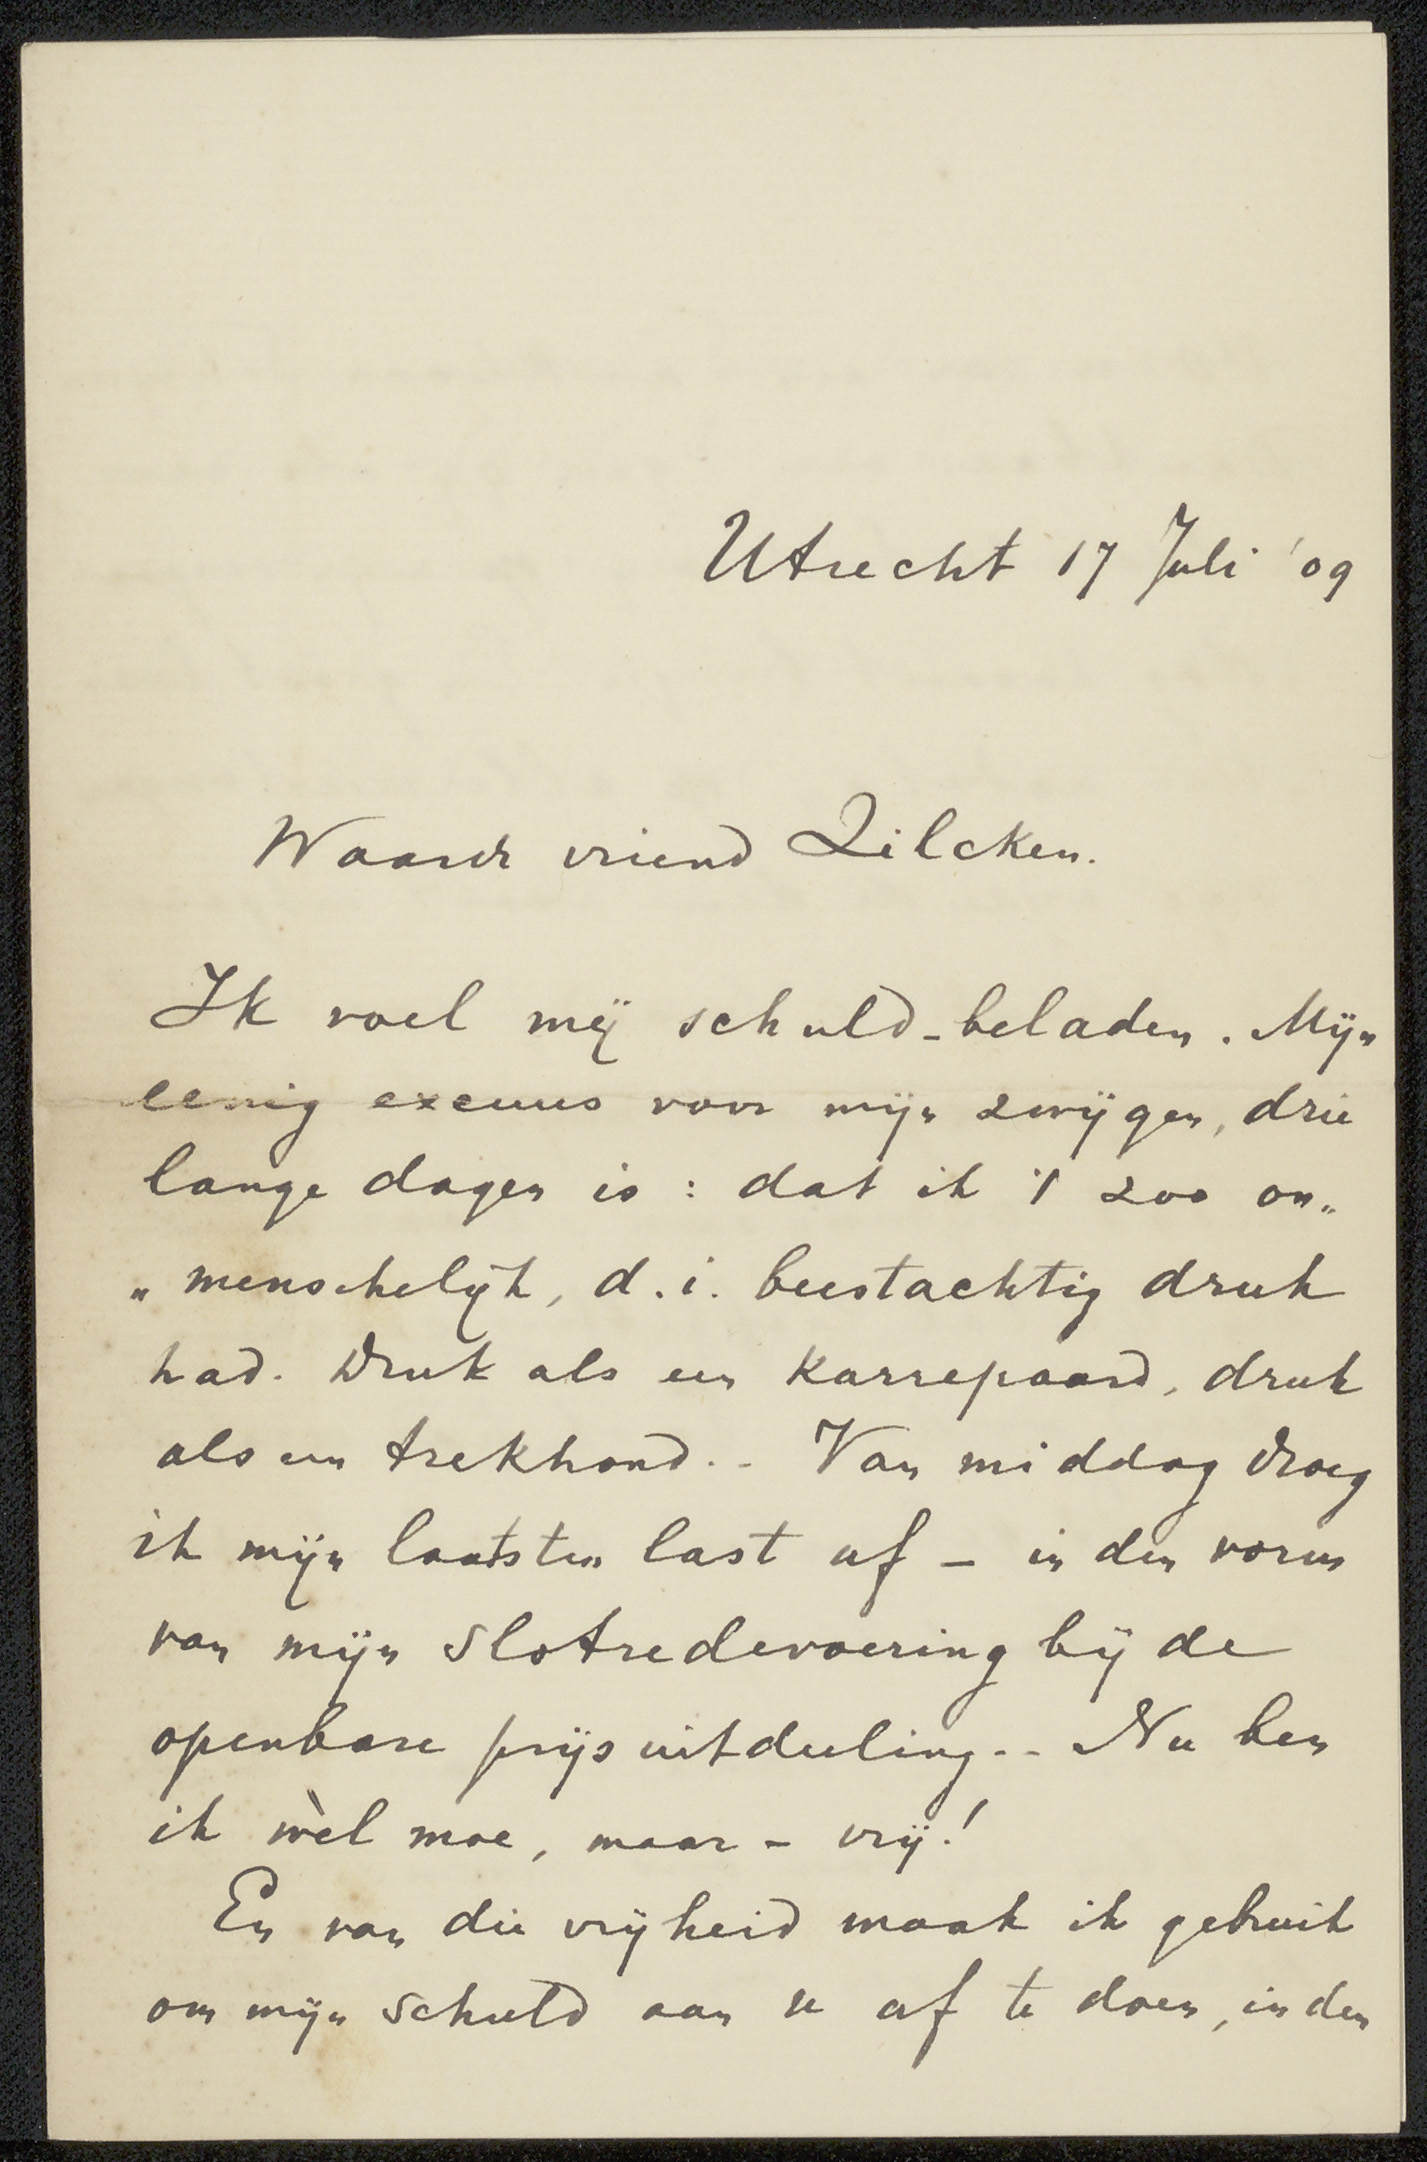 Utrecht 17 Juli '09
Waarde vriend Zilcken.
Ik voel mij schuld-beladen. Mijn
eenig excuus voor mijn zwijgen, drie
lange dagen is: dat ik 't zoo on„
„menschelijk, d.i. beestachtig druk
had. Druk als een karrepaard, druk
als een trekhond.. Van middag droeg
ik mijn laatsten last af – in den vorm
van mijn slotredevoering bij de
openbare prijsuitdeeling.. Nu ben
ik wèl moe, maar – vrij!
En van die vrijheid maak ik gebruik
om mijn schuld aan u af te doen, in den